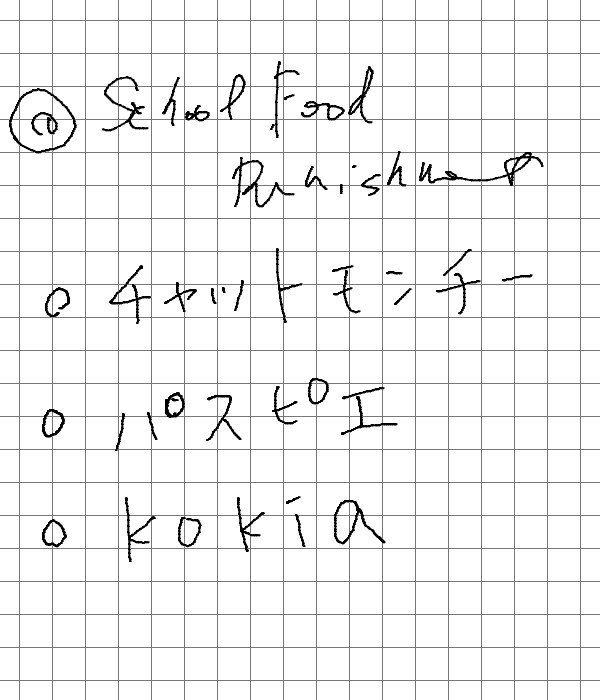 ◎ School Food
Punishment
○ チャットモンチー
○ パスピエ
○ kokia